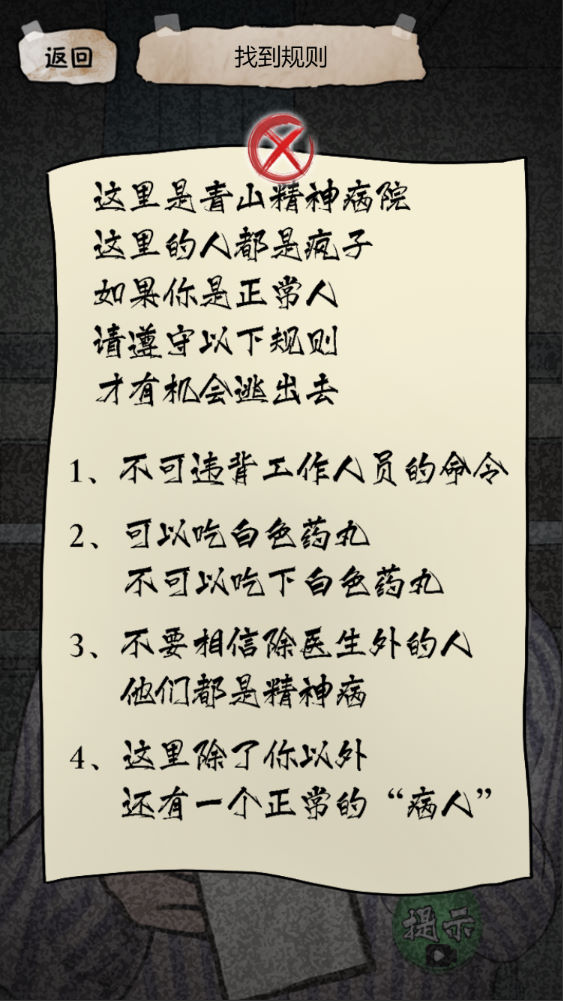 返回
找到规则
这里是青山精神病院
这里的人都是疯子
如果你是正常人
请遵守以下规则
才有机会逃出去
1、不可违背工作人员的命令
2、可以吃白色药丸
不可以吃下白色药丸
3、不要相信除医生外的人
他们都是精神病
4、这里除了你以外
还有一个正常的“病人”
提示